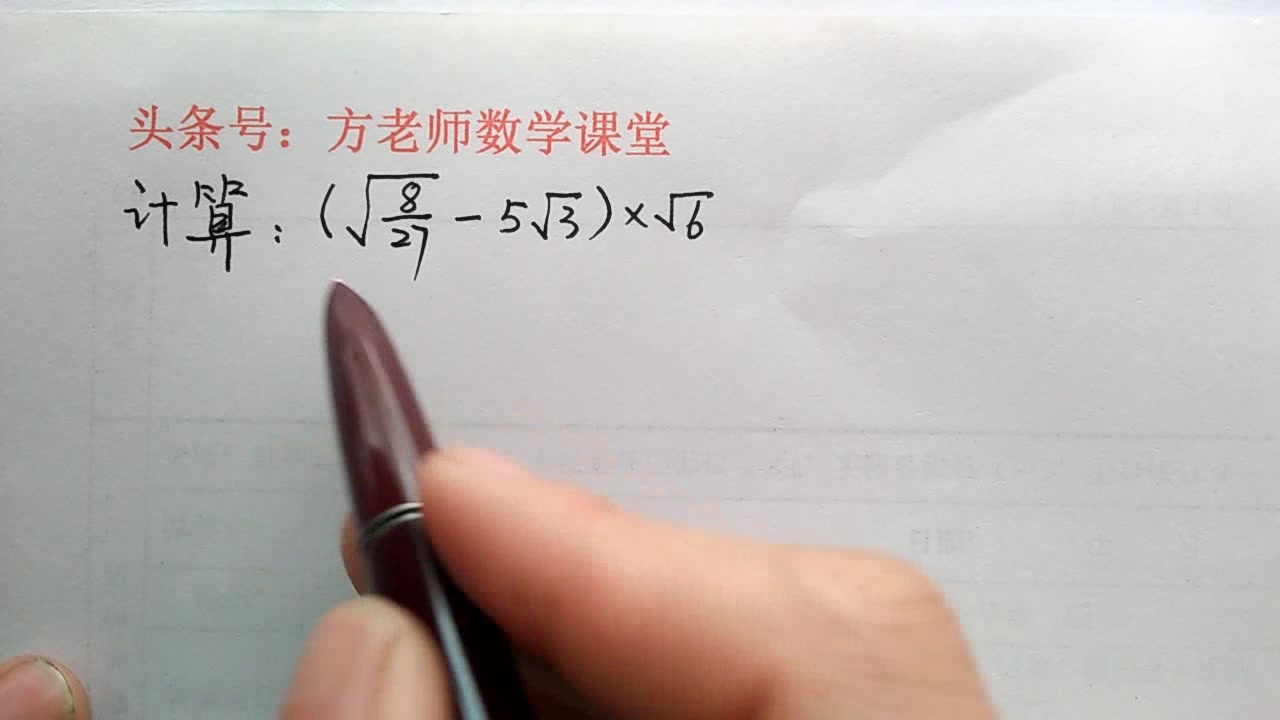 头条号：方老师数学课堂
计算：(√(8/27) - 5√3)×√6